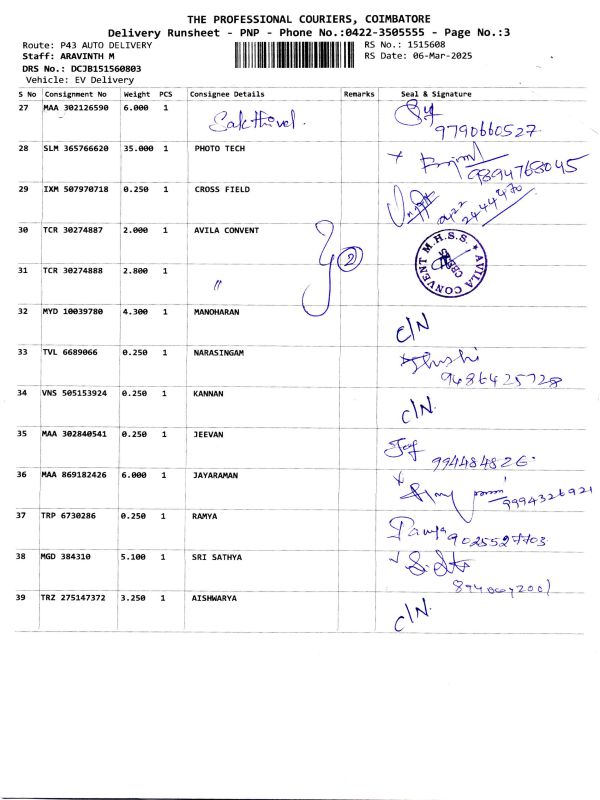 THE PROFESSIONAL COURIERS, COIMBATORE
Delivery Runsheet - PNP - Phone No.:0422-3505555 - Page No.:3
Route: P43 AUTO DELIVERY
RS No.: 1515608
Staff: ARAVINTH M
RS Date: 06-Mar-2025
DRS No.: DCJB151560803
Vehicle: EV Delivery
S No Consignment No Weight PCS Consignee Details Remarks Seal & Signature
27 MAA 302126590 6.000 1 Sakthivel.
9790660527
28 SLM 365766620 35.000 1 PHOTO TECH
9894768045
29 IXM 507970718 0.250 1 CROSS FIELD
0422
2444470
30 TCR 30274887 2.000 1 AVILA CONVENT
2
AVILA CONVENT M.H.S.S.
31 TCR 30274888 2.800 1 "
32 MYD 10039780 4.300 1 MANOHARAN C/N
33 TVL 6689066 0.250 1 NARASINGAM
9486425728
34 VNS 505153924 0.250 1 KANNAN C/N.
35 MAA 302840541 0.250 1 JEEVAN
36 MAA 869182426 6.000 1 JAYARAMAN
9994326921
37 TRP 6730286 0.250 1 RAMYA Ramya
9025527703
38 MGD 384310 5.100 1 SRI SATHYA
39 TRZ 275147372 3.250 1 AISHWARYA C/N.